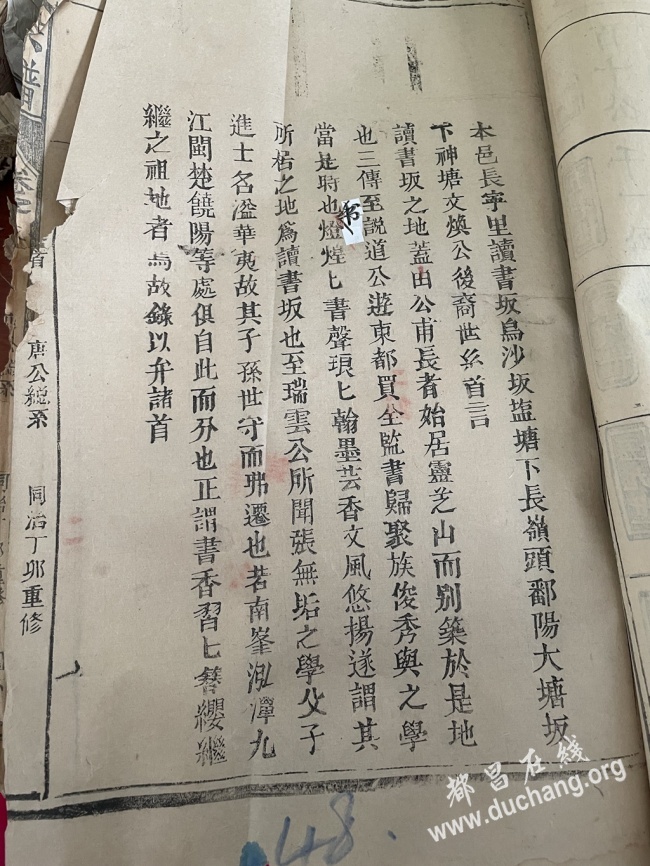 本邑長寧里讀書坂烏沙坂塩塘下長嶺頭鄱陽大塘坂
下神塘文煥公後裔世系首言
讀書坂之地蓋由公甫長者始居靈芝山而别築於是地
也三傳至說道公遊東都買全監書歸聚族俊秀與之學
當是時也燈煌匕書聲琅匕翰墨芸香文風悠揚遂謂其
书
所居之地為讀書坂也至瑞雲公所聞張無垢之學父子
進士名溢華夷故其子孫世守而弗遷也若南峯泓潭九
江閩楚饒陽等處俱自此而分也正謂書香習匕簪纓繼
繼之祖地者焉故錄以弁諸首
譜
卷之
首
唐公總系
同治丁夘重修
48.
都昌在线
www.duchang.org